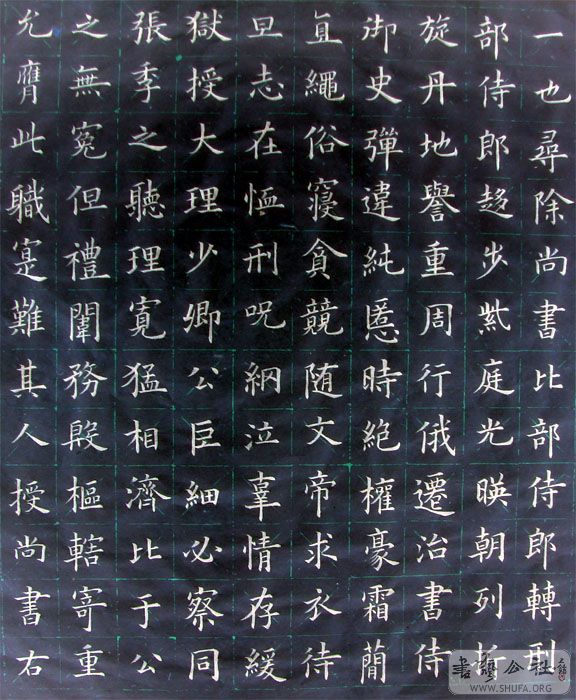 一也尋除尚書比部侍郎轉刑
部侍郎趍步紫庭光暎朝列折
旋丹地譽重周行俄遷治書侍
御史彈違純慝時絕權豪霜蕳
直繩俗寢貪競随文帝求衣待
旦志在恤刑呪網泣辜情存緩
獄授大理少卿公巨細必察同
張季之聽理寬猛相濟比于公
之無冤但禮闈務殷樞轄寄重
允膺此職寔難其人授尚書右
書藝公社
WWW.SHUFA.ORG